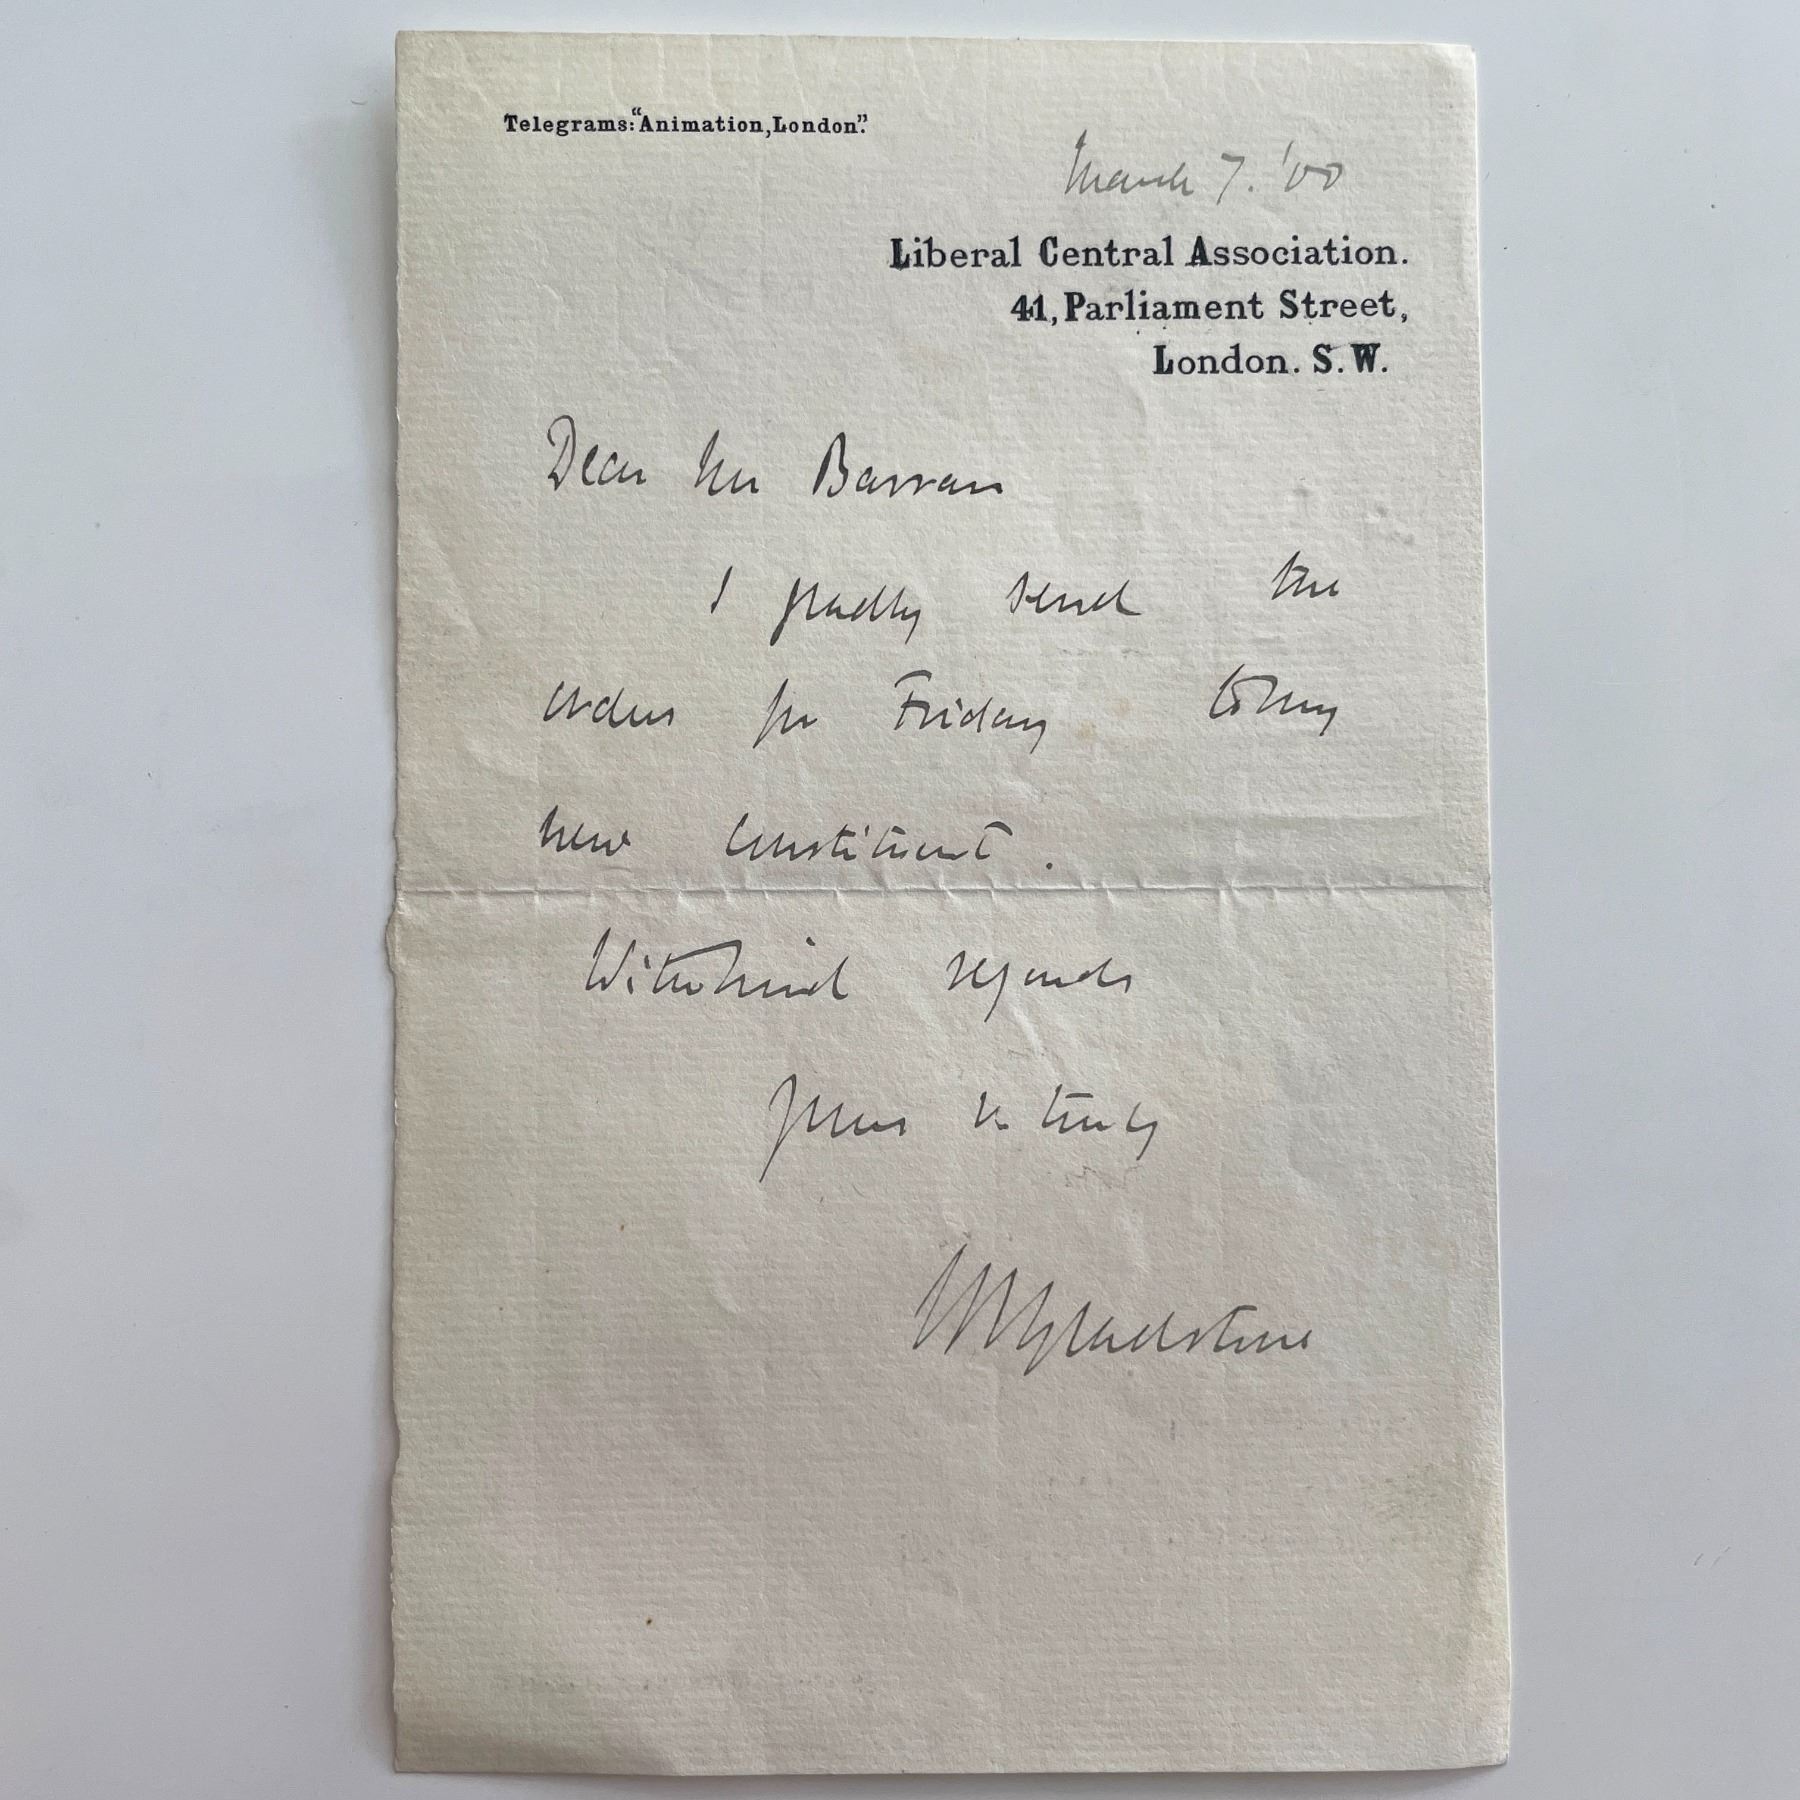 Telegrams:"Animation, London".
March 7. '00
Liberal Central Association.
41, Parliament Street,
London. S.W.
Dear Mr Barran
I gladly send the
orders for Friday to my
new constituent.
With kind regards
yours v. truly
HJGladstone